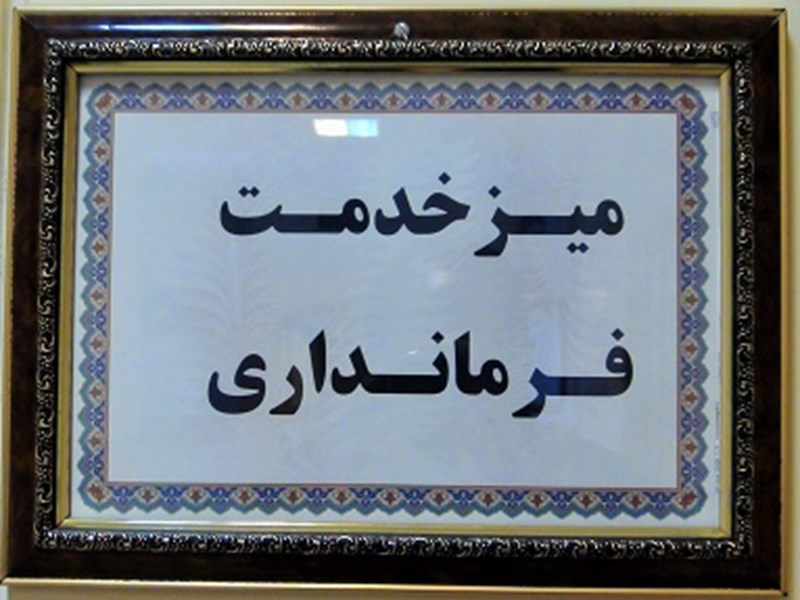 میز خدمت
فرمانداری